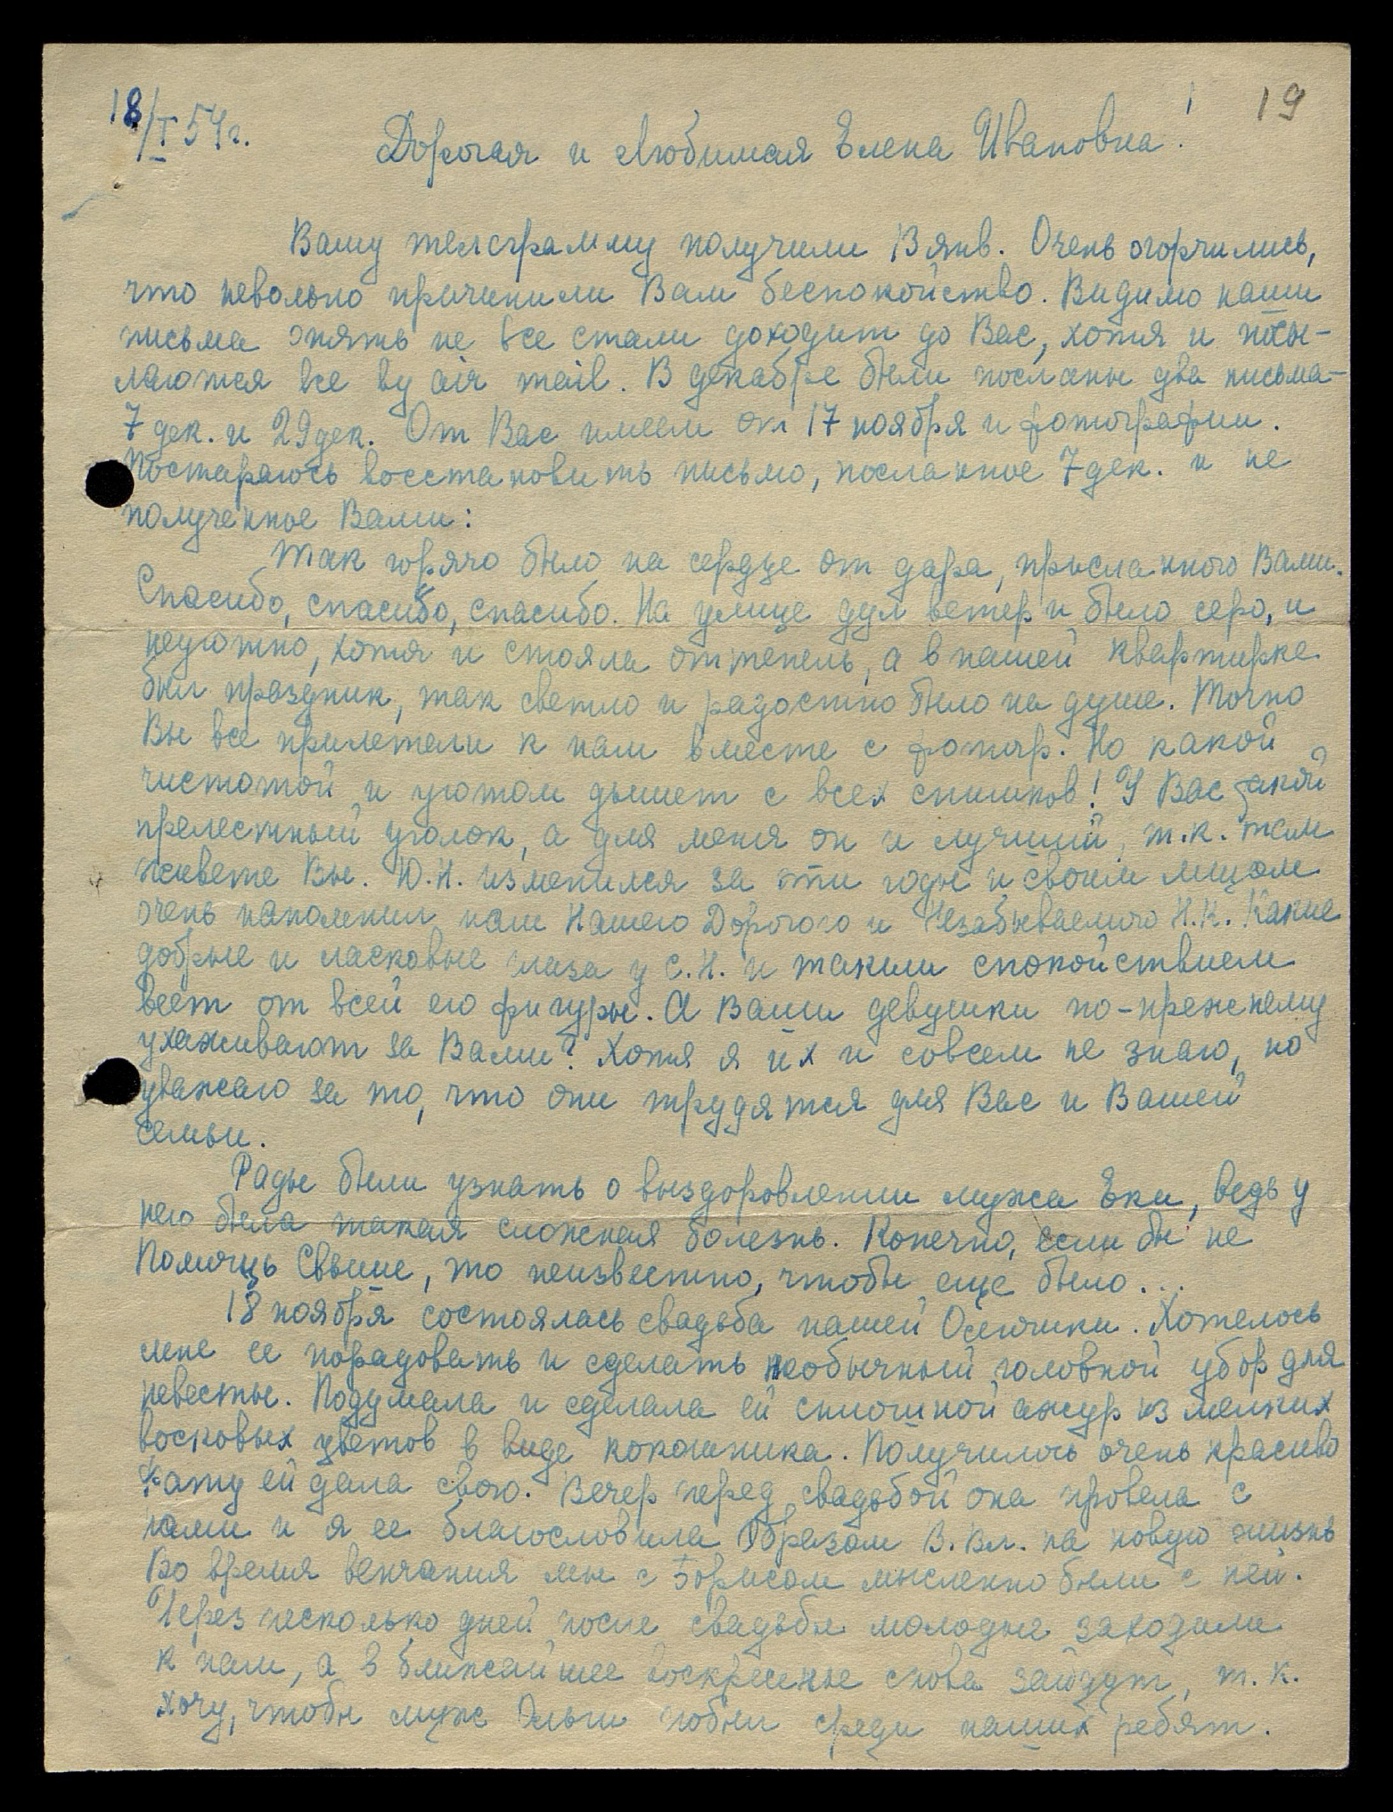 18/I 54 г.
19
Дорогая и Любимая Елена Ивановна!
Вашу телеграмму получили 13 янв. Очень огорчились,
что невольно причинили Вам беспокойство. Видимо наши
письма опять не все стали доходит до Вас, хотя и посы-
лаются все by air mail. В декабре были посланы два письма-
7 дек. и 29 дек. От Вас имеем от 17 ноября и фотографии.
Постараюсь восстановить письмо, посланное 7 дек. и не
полученное Вами:
Так горячо было на сердце от дара, присланного Вами.
Спасибо, спасибо, спасибо. На улице дул ветер и было серо, и
неуютно, хотя и стояла оттепель, а в нашей квартирке
был праздник, так светло и радостно было на душе. Точно
Вы все прилетели к нам вместе с фотогр. Но какой
чистотой и уютом дышет с всех снимков! У Вас такой
прелестный уголок, а для меня он и лучший, т.к. там
живете Вы. Ю.Н. изменился за эти годы и своим лицом
очень напомнил нам Нашего Дорогого и Незабываемого Н.К. Какие
добрые и ласковые глаза у С.Н. и таким спокойствием
веет от всей его фигуры. А Ваши девушки по-прежнему
ухаживают за Вами? Хотя я их и совсем не знаю, но
уважаю за то, что они трудятся для Вас и Вашей
семьи.
Рады были узнать о выздоровлении мужа Еки, ведь у
него была такая сложная болезнь. Конечно, если бы не
Помощь Свыше, то неизвестно, чтобы еще было...
18 ноября состоялась свадьба нашей Олюшки. Хотелось
мне ее порадовать и сделать необычный головной убор для
невесты. Подумала и сделала ей сплошной ажур из мелких
восковых цветов в виде кокошника. Получилось очень красиво
Фату ей дала свою. Вечер перед свадьбой она провела с
нами и я ее благословила Образом В. Вл. на новую жизнь
Во время венчания мы с Борисом мысленно были с ней.
Через несколько дней после свадьбы молодые заходили
к нам, а в ближайшее воскресенье снова зайдут, т.к.
хочу, чтобы муж Ольги побыл среди наших ребят.